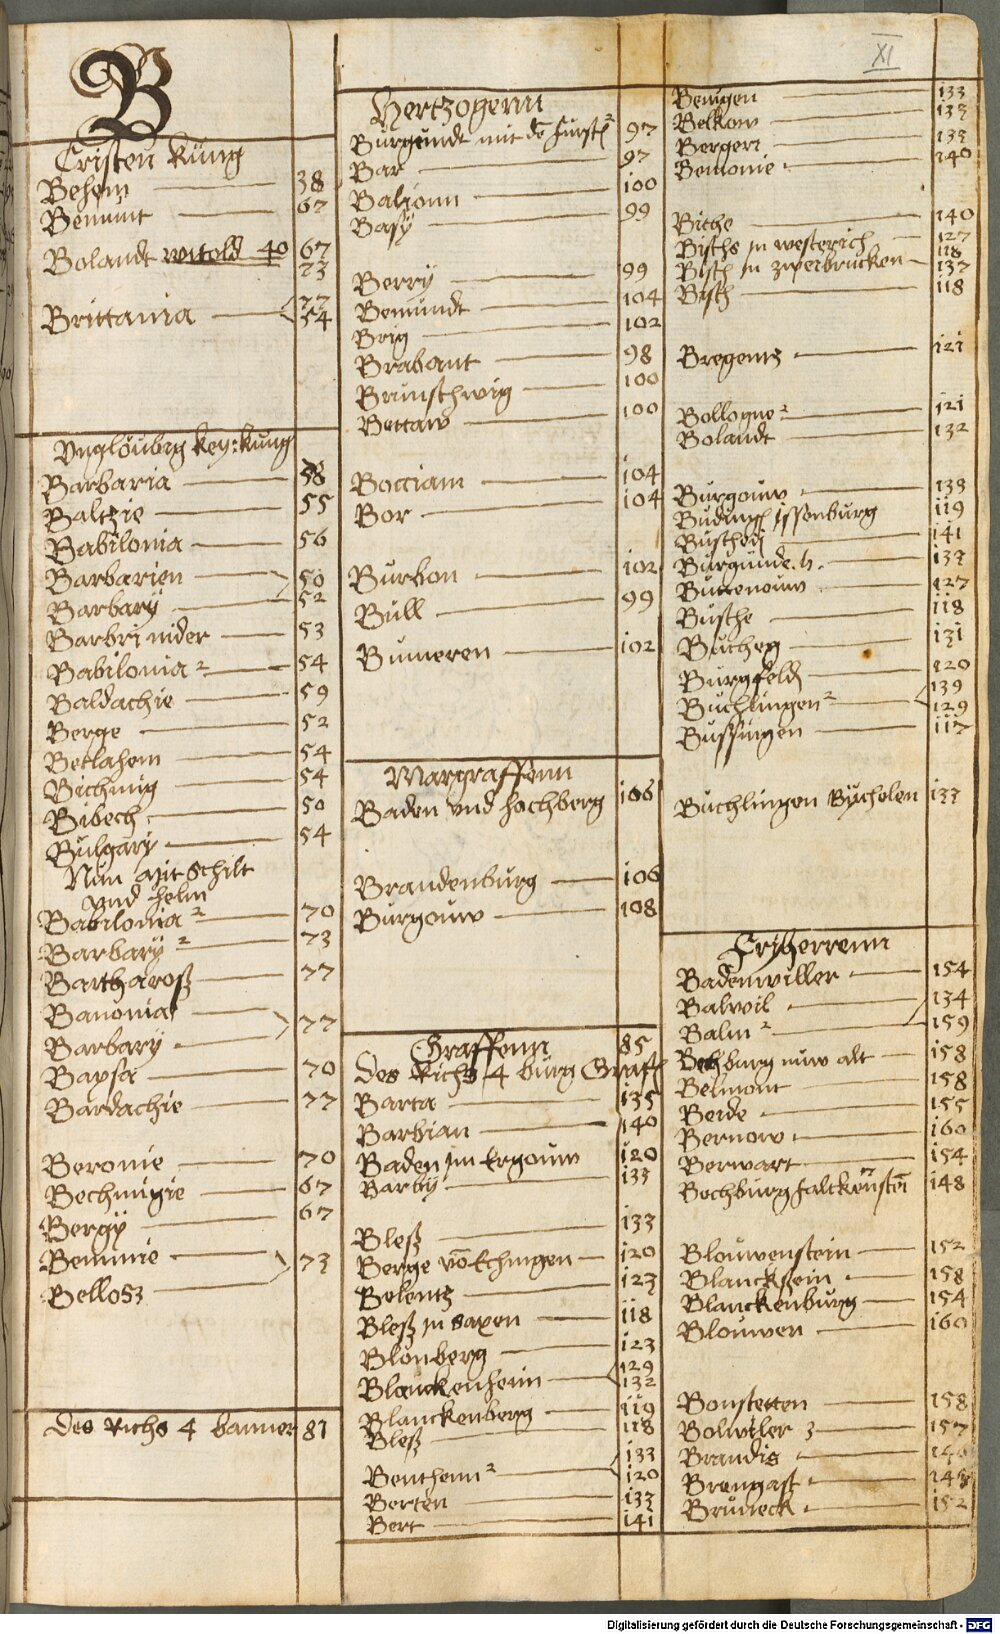 XI
B
Cristen Küng
Behem 38
Bemunt 67
Bolandt witold 40 67
73
Brittania 77
54
Unglöubig key: kung
Barbaria 58
Baltzie 55
Babilonia 56
Barbarien 50
Barbary 52
Barbri nider 53
Babilonia 2 54
Baldachie 59
Berge 52
Betlahem 54
Bechung 54
Bibech 50
Bulgary 54
Nün mit Schilt
und helm
Babilonia 2 70
Barbary 2 73
Barthaross 77
Banonia 77
Barbary
Bapsa 70
Bardachie 77
Beronie 70
Bechnugie 67
Bergy 67
Bemmie 73
Bellosz
Des Richs 4 banner 81
Hertzogenn
Burgundt mit de fürst 97
Bar 97
Balionn 100
Basy 99
Berry 99
Bemundt 104
Brig 102
Brabant 98
Brunschwig 100
Bettaw 100
Bocciam 104
Bor 104
Burbon 102
Bull 99
Bumeren 102
Margraffenn
Baden und Hochberg 106
Brandenburg 106
Burgouw 108
Graffenn 85
Des Richs 4 burg Graff
Barta 135
Barbian 140
Baden im Ergouw 120
Barby 133
Bless 133
Berge vo Echingen 120
Belentz 123
Bless in Saxen 118
Blonberg 123
Blanckenheim 129
132
Blanckenberg 119
Bless 118
Benthem 2 133
120
Berten 133
Bert 141
Bemgen 133
Belkow 133
Berger 133
Bemonie 140
Bitche 140
Bischs in westerich 127
118
Bisch in zweibrucken 137
Bisch 118
Bregentz 121
Bollogne 2 121
Bolandt 132
Burgouw 138
Buding Issenburg 119
141
Burgunde. h. 137
Buttenouw 127
Busche 118
Bucheg 131
Burgfeld 120
Buchlingen 2 139
129
Bussingen 117
Buchlingen Bychelen 133
Fryherrenn
Badenwiller 154
Balwil 134
Balm 2 159
Bechburg nuw alt 158
Belmont 158
Beide 155
Bernow 160
Berwart 154
Bechburg falckenstei 148
Blouwenstein 152
Blanckstein 158
Blanckenburg 154
Blouwen 160
Bonstetten 158
Bolwiler 3 157
Brandis
Bremgast
Bruneck 152
Digitalisierung gefördert durch die Deutsche Forschungsgemeinschaft - DFG